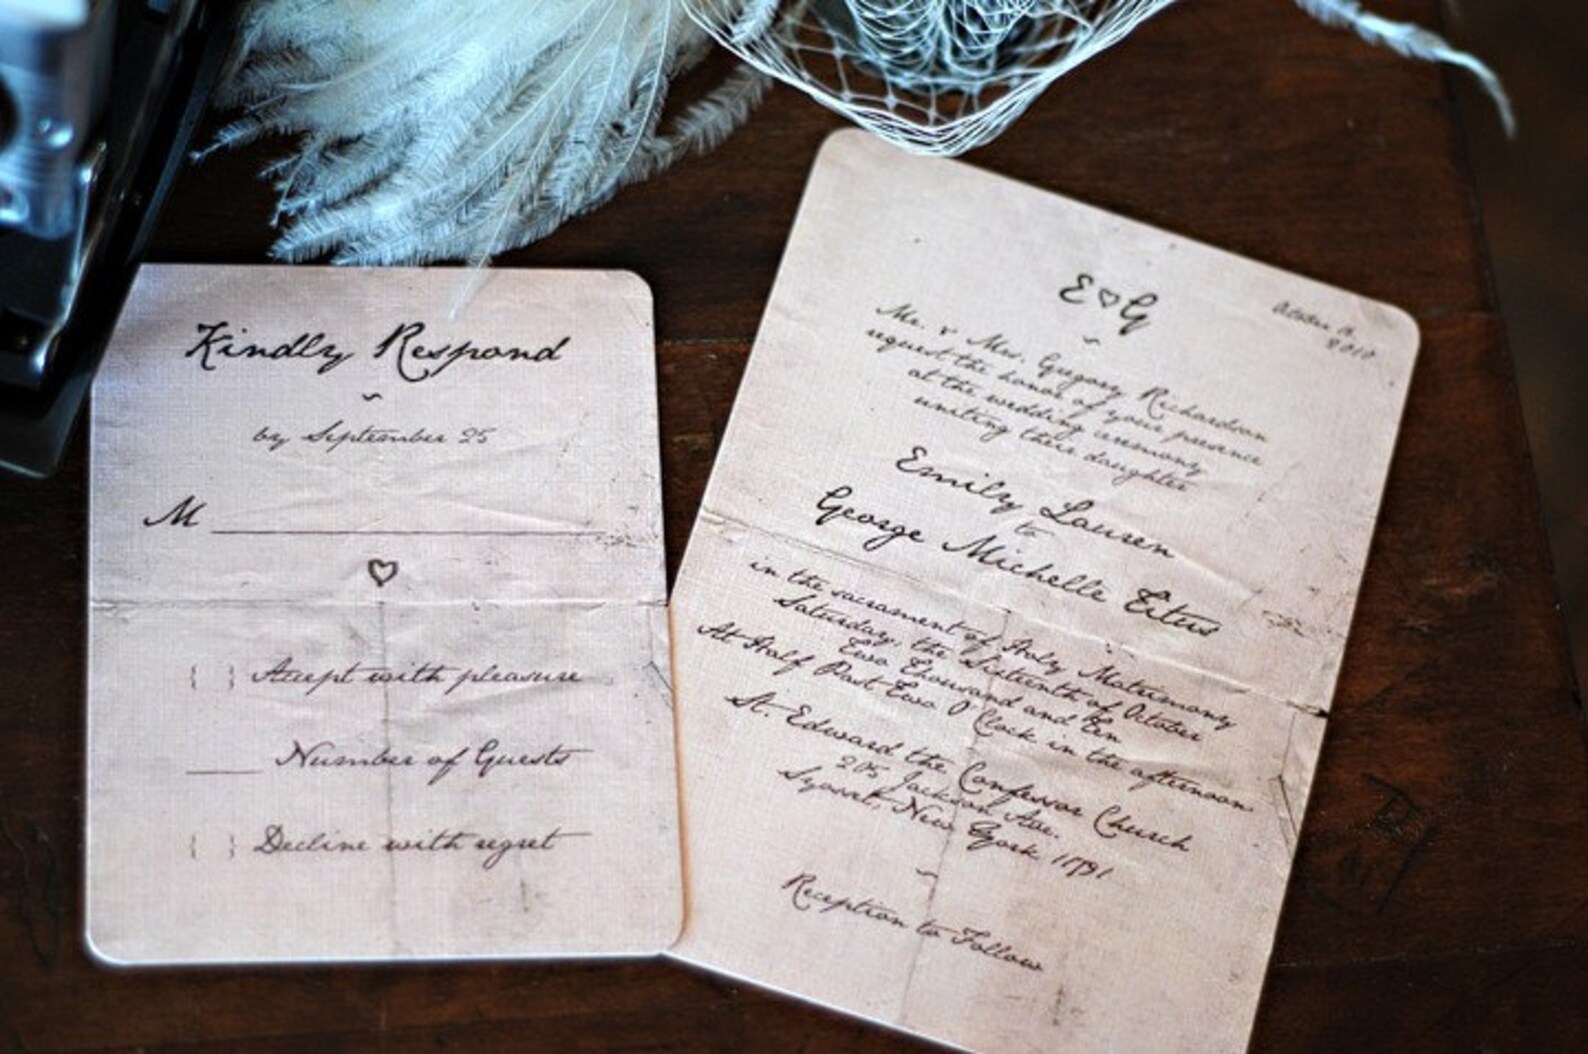 Kindly Respond
~
by September 25
M
{ } Accept with pleasure
Number of Guests
{ } Decline with regret
E G
October
2010
~
Mr. & Mrs. Gregory Richardson
request the honor of your presence
at the wedding ceremony
uniting their daughter
Emily Lauren
to
George Michelle Titus
in the sacrament of Holy Matrimony
Saturday, the Sixteenth of October
Two Thousand and Ten
At Half Past Two O'Clock in the afternoon
St. Edward the Confessor Church
205 Jackson Ave.
Syosset, New York 11791
~
Reception to Follow